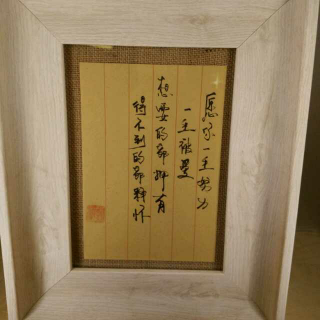 愿你一生努力
一生被爱
想要的都拥有
得不到的都释怀